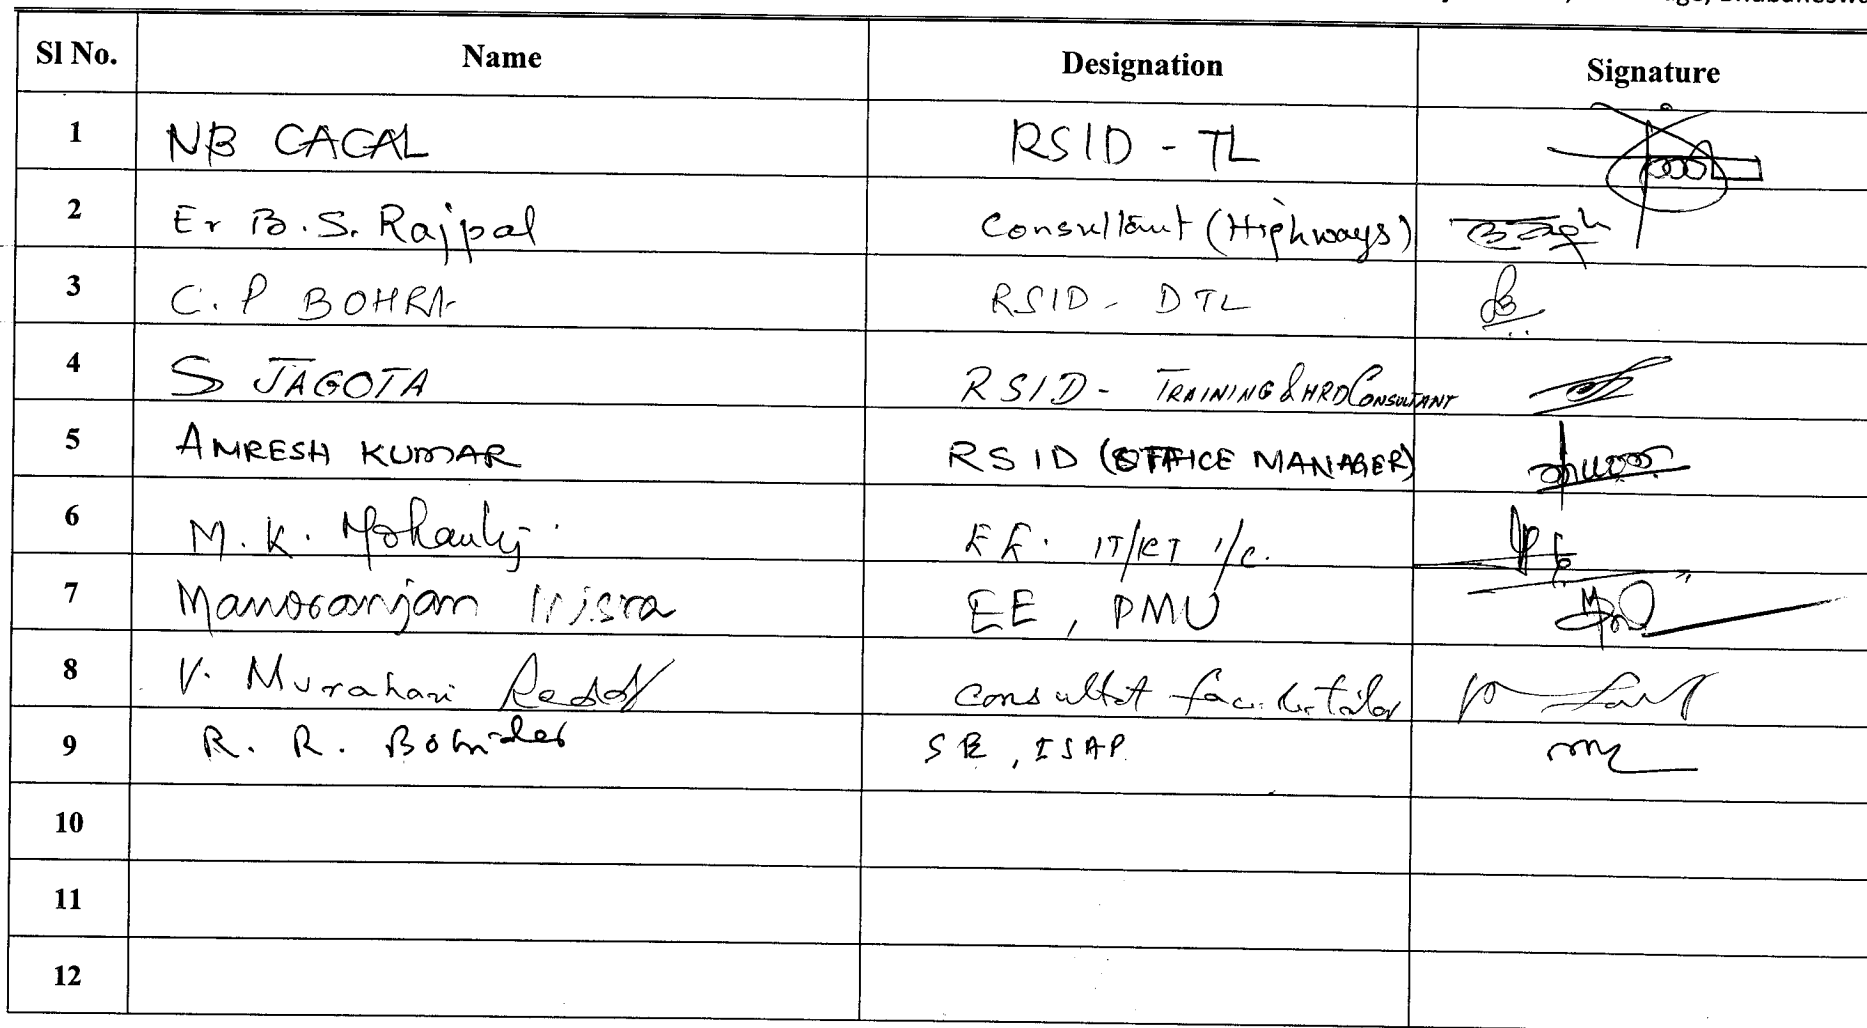 Sl No. Name Designation Signature
1 NB CACAL RSID - TL
2 Er B. S. Rajpal Consultant (Highways)
3 C. P BOHRA RSID - DTL
4 S JAGOTA RSID - TRAINING & HRD CONSULTANT
5 AMRESH KUMAR RSID (OFFICE MANAGER)
6 M. K. Mohanty EE. IT/
7 Manoranjan Misra EE, PMU
8 V. Murahari Reddy
9 R. R. SE, ISAP
10
11
12